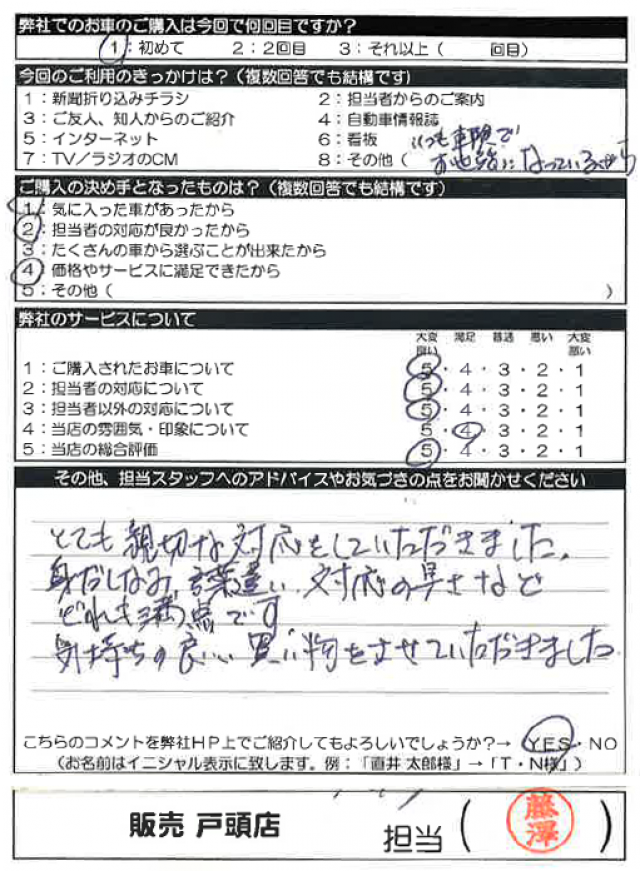 弊社でのお車のご購入は今回で何回目ですか?
1:初めて 2:2回目 3:それ以上( 回目)
今回のご利用のきっかけは?(複数回答でも結構です)
1:新聞折り込みチラシ 2:担当者からのご案内
3:ご友人、知人からのご紹介 4:自動車情報誌
5:インターネット 6:看板
7:TV/ラジオのCM 8:その他(
いつも車険で
お世話になっているから
ご購入の決め手となったものは?(複数回答でも結構です)
1:気に入った車があったから
2:担当者の対応が良かったから
3:たくさんの車から選ぶことが出来たから
4:価格やサービスに満足できたから
5:その他( )
弊社のサービスについて
大変良い 満足 普通 悪い 大変悪い
1:ご購入されたお車について 5・4・3・2・1
2:担当者の対応について 5・4・3・2・1
3:担当者以外の対応について 5・4・3・2・1
4:当店の雰囲気・印象について 5・4・3・2・1
5:当店の総合評価 5・4・3・2・1
その他、担当スタッフへのアドバイスやお気づきの点をお聞かせください
とても親切な対応をしていただきました。
身だしなみ、言葉遣い、対応の早さなど
どれも満点です
気持ちの良い買い物をさせていただきました
こちらのコメントを弊社HP上でご紹介してもよろしいでしょうか?→ YES・NO
(お名前はイニシャル表示に致します。例:「直井 太郎様」→「T・N様」)
販売 戸頭店 担当( 藤澤 )